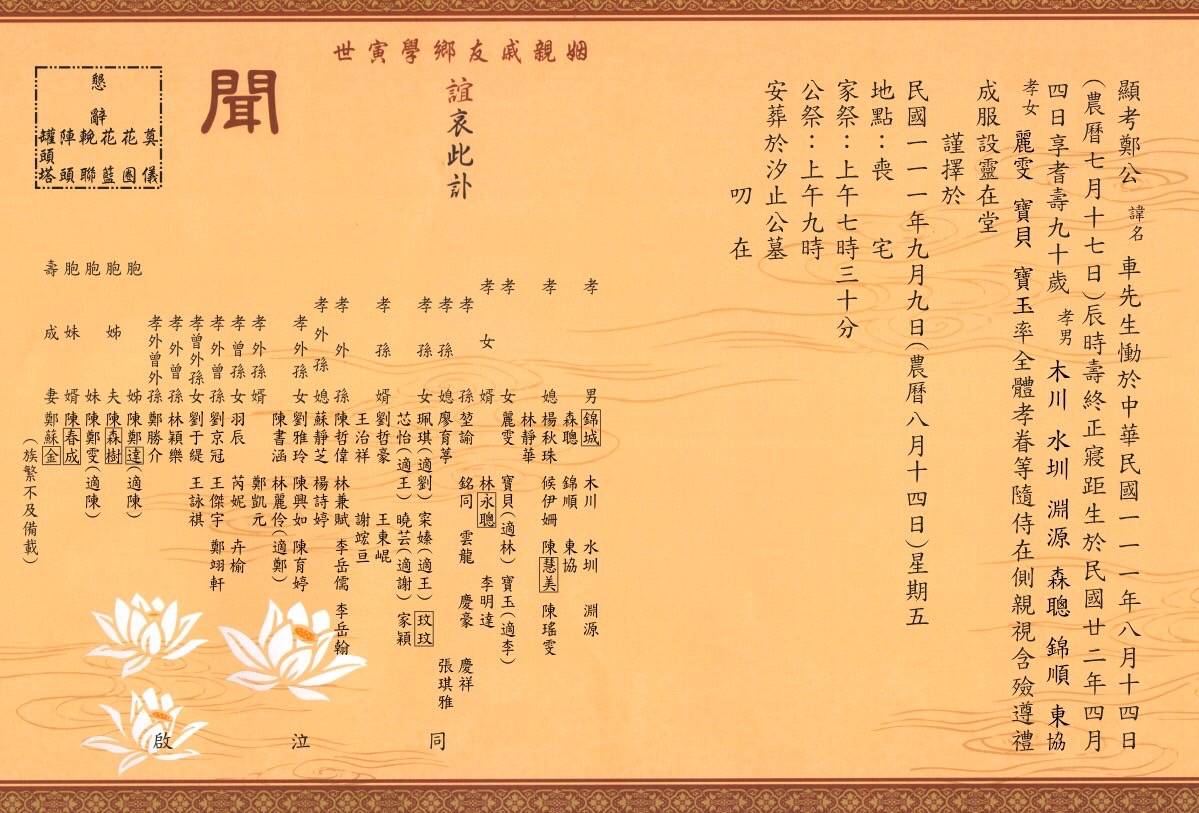 顯考鄭公 諱名 車先生慟於中華民國一一一年八月十四日
(農曆七月十七日)辰時壽終正寢距生於民國廿二年四月
四日享耆壽九十歲 孝男 木川 水圳 淵源 森聰 錦順 東協
孝女 麗雯 寶貝 寶玉率全體孝眷等隨侍在側親視含殮遵禮
成服設靈在堂
謹擇於
民國一一一年九月九日(農曆八月十四日)星期五
地點：喪 宅
家祭：上午七時三十分
公祭：上午九時
安葬於汐止公墓
叨 在
姻親戚友鄉學寅世
誼哀此訃
聞
孝男 錦城 木川 水圳 淵源
森聰 錦順 東協
孝媳 楊秋珠 候伊姍 陳慧美 陳瑤雯
林靜華
孝女 麗雯 寶貝(適林) 寶玉(適李)
孝女婿 林永聰 李明達
孝孫 堃諭 銘同 雲龍 慶豪 慶祥
孝孫媳 廖育葶 張琪雅
孝孫女 珮琪(適劉) 寀嫀(適王) 玟玟
芯怡(適王) 曉芸(適謝) 家穎
孝孫婿 劉哲豪 王東崐
王治祥 謝竤亘
孝外孫 陳哲偉 林兼賦 李岳儒 李岳翰
孝外孫媳 蘇靜芝 楊詩婷
孝外孫女 劉雅玲 陳興如 陳育婷
陳書涵 林麗伶(適鄭)
孝外孫婿 鄭凱元
孝曾孫女 羽辰 芮妮 卉榆
孝曾外孫 劉京冠 王傑宇 鄭翊軒
孝曾外孫女 劉于緹 王詠祺
孝外曾孫 林穎樂
孝外曾外孫 鄭勝介
胞姊 陳鄭達(適陳)
胞姊夫 陳森樹
胞妹 陳鄭雯(適陳)
胞妹婿 陳春成
壽成妻 鄭蘇金
(族繁不及備載)
同 泣 啟
懇辭
奠儀
花圈
花籃
輓聯
陣頭
罐頭塔